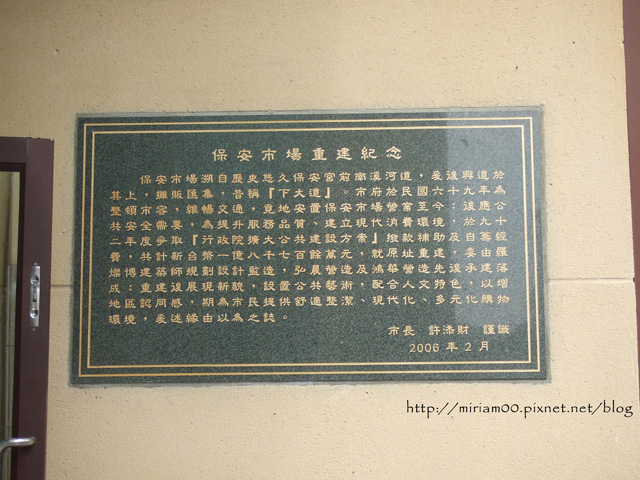 保安市場重建紀念
保安市場溯自歷史悠久保安宮前南溪河道，爰後興道於
其上，攤販匯集，昔稱『下大道』。市府於民國六十九年為
整頓市容，維暢交通，覓地安置保安市場營業至今；後應公
共安全需要，為提升服務品質，建立現代消費環境，於九十
二年度爭取『行政院擴大公共建設方案』撥款補助及自籌經
費，共計新台幣一億八千七百餘萬元，就原址重建，委由羅
燦博建築師規劃設計監造，弘晨營造
成
地區認同感，期為市民提供舒適整潔、現代化、多元化購物
環境，爰述緣由以為之誌。
市長 許添財 謹識
2006 年 2 月
http://miriam00.pixnet.net/blog